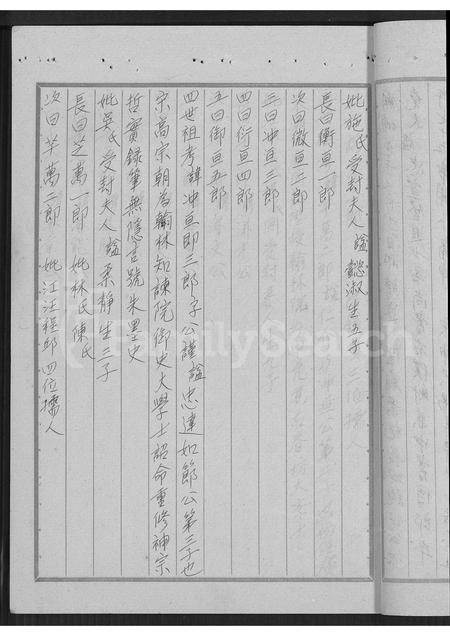 妣施氏受封夫人謚懿淑生五子
長曰衡亘一郎
次曰微亘二郎
三曰冲亘三郎
四曰衍亘四郎
五曰御亘五郎
四世祖考諱冲亘即三郎子公謹謚忠達如節公第三子也
宗高宗朝為翰林知諫院御史大學士詔命重修神宗
哲實錄筆無隱官號朱墨史
妣吳氏受封夫人謚柔靜生三子
長曰芝萬一郎 妣林氏陳氏
次曰芊萬二郎 妣江汪程邱四位孺人
FamilySearch